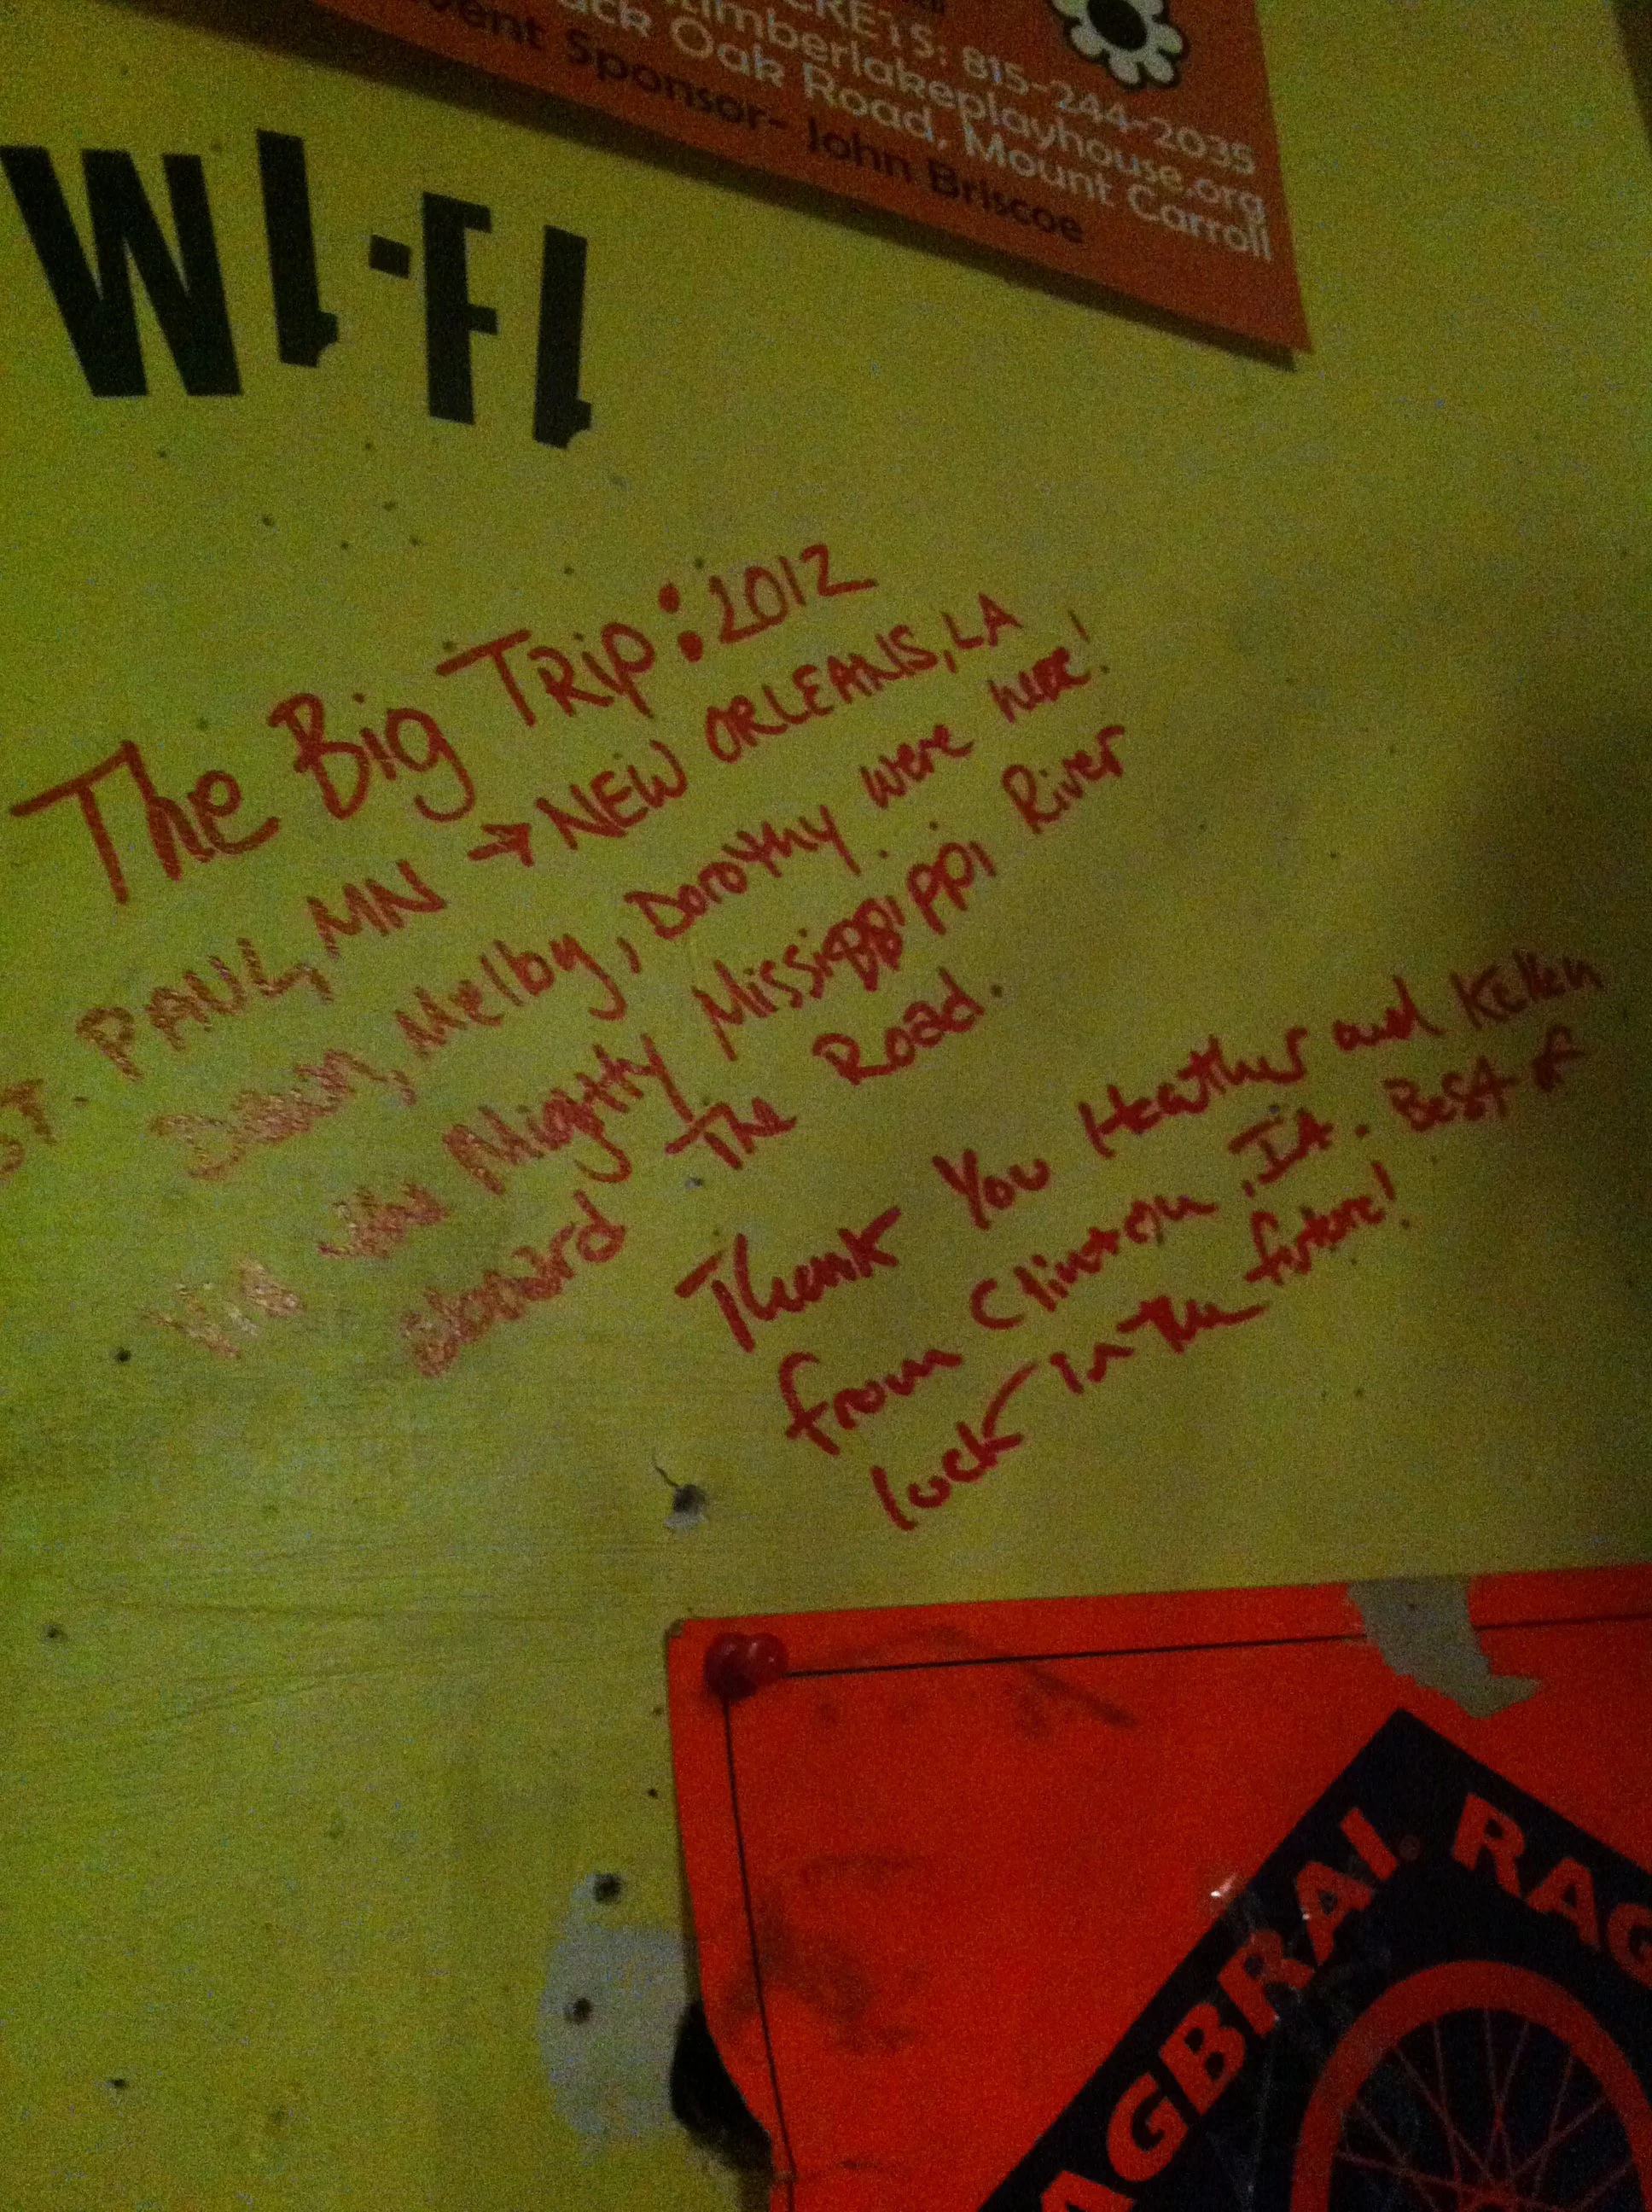 CKETS: 815-244-2035
timberlakeplayhouse.org
ack Oak Road, Mount Carroll
vent Sponsor- John Briscoe
WI-FI
The Big TRip: 2012
ST. PAUL, MN → NEW ORLEANS, LA
Melby, Dorothy were here!
VIA the Mighty Mississippi River
The Road.
Thank You Heather and Kellen
from Clinton, IA. Best of
luck in the future!
AGBRAI RAG